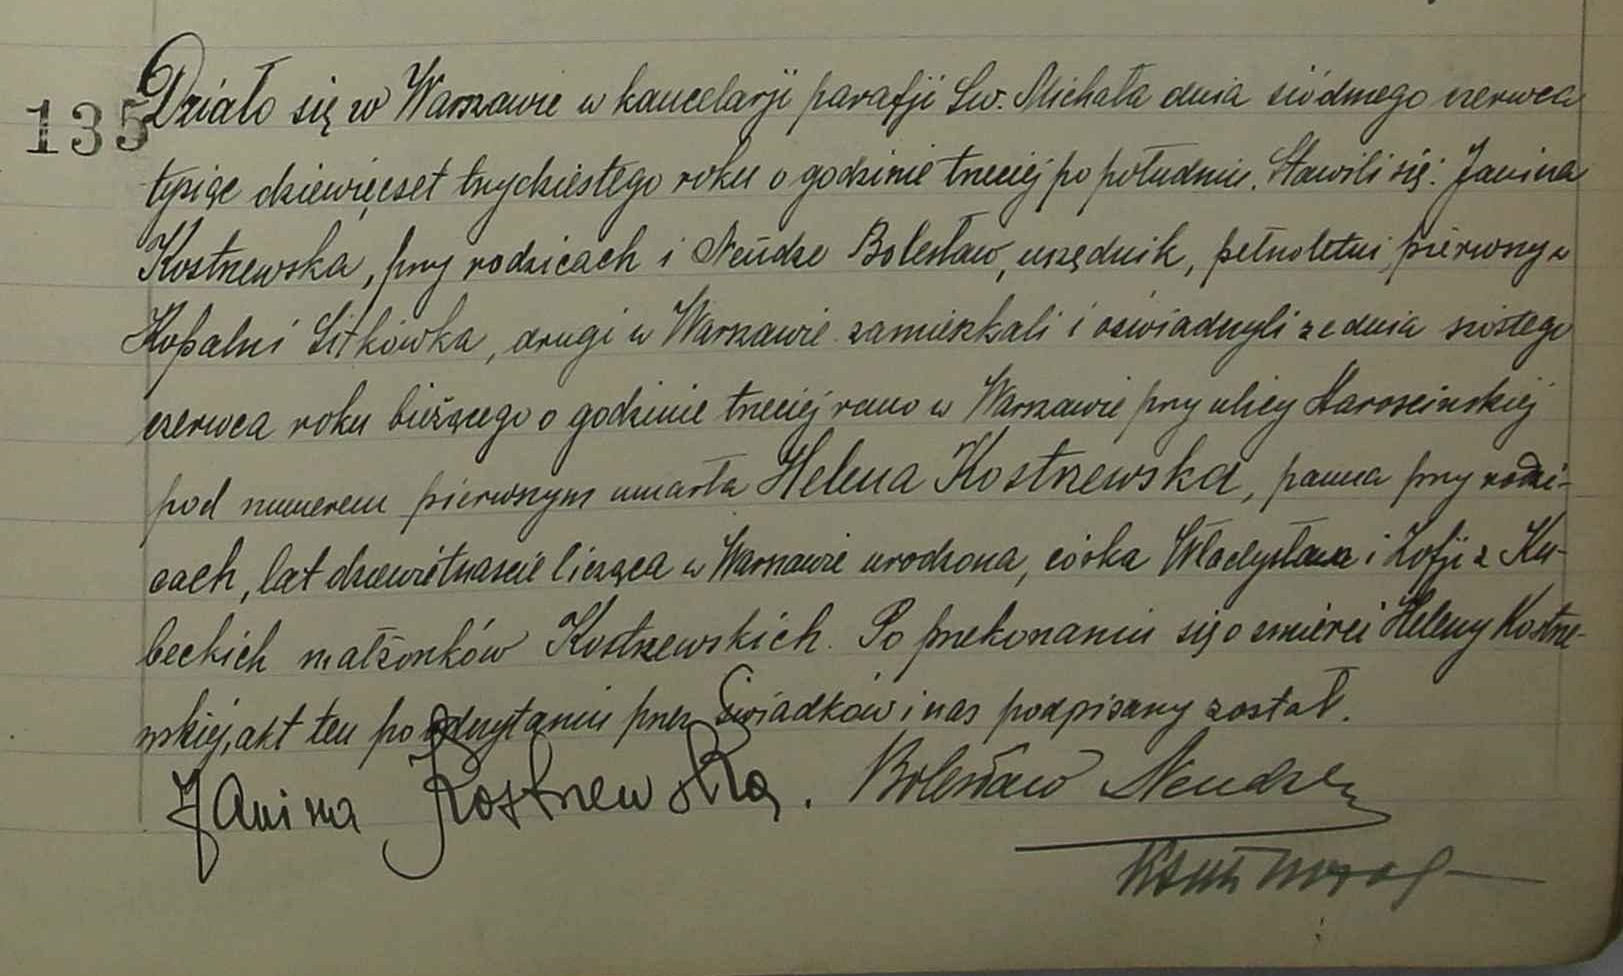 135
Działo się w Warszawie w kancelarji parafji Św. Michała dnia siódmego czerwca
tysiąc dziewięćset trzydziestego roku o godzinie trzeciej po południu. Stawili się: Janina
Kostrzewska, przy rodzicach i Neudze Bolesław, urzędnik, pełnoletni, pierwszy z
Kopalni Sitkówka, drugi w Warszawie zamieszkali i oświadczyli że dnia szóstego
czerwca roku bieżącego o godzinie trzeciej rano w Warszawie przy ulicy Starościńskiej
pod numerem pierwszym umarła Helena Kostrzewska, panna przy rodzi-
cach, lat dziewiętnaście licząca w Warszawie urodzona, córka Władysława i Zofji z Ku-
beckich małżonków Kostrzewskich. Po przekonaniu się o śmierci Heleny Kostrze-
wskiej, akt ten po odczytaniu przez świadków i nas podpisany został.
Janina Kostrzewska. Bolesław Neudze